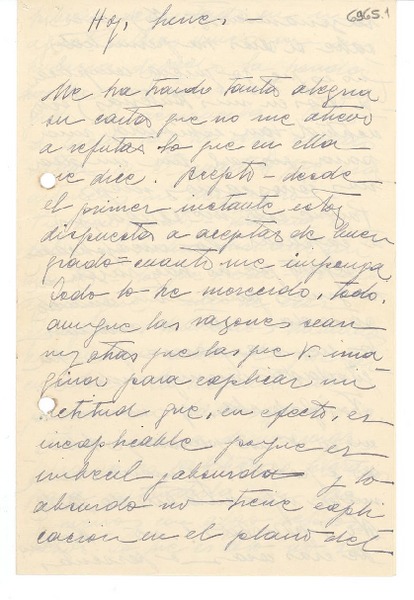 Hoy, lunes, —
6965.1
Me ha traido tanta alegria
su carta que no me atrevo
a refutar lo que en ella
se dice. Acepto – desde
el primer instante estoy
dispuesta a aceptar de buen
grado – cuanto me imponga.
Todo lo he merecido, todo,
aunque las razones sean
muy otras que las que V. ima
gina para explicar mi
actitud que, en efecto, es
inexplicable porque es
imbécil y absurda y lo
absurdo no tiene expli
cacion en el plano del